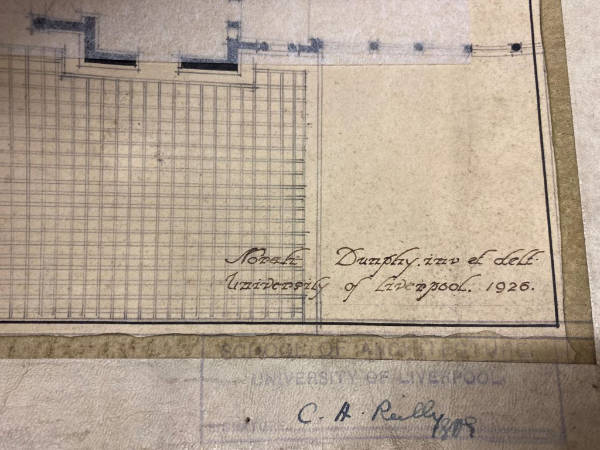 Norah Dunphy. inv et delt.
University of Liverpool. 1926.
SCHOOL OF ARCHITECTURE
UNIVERSITY OF LIVERPOOL
C. H. Reilly
SIGNATURE